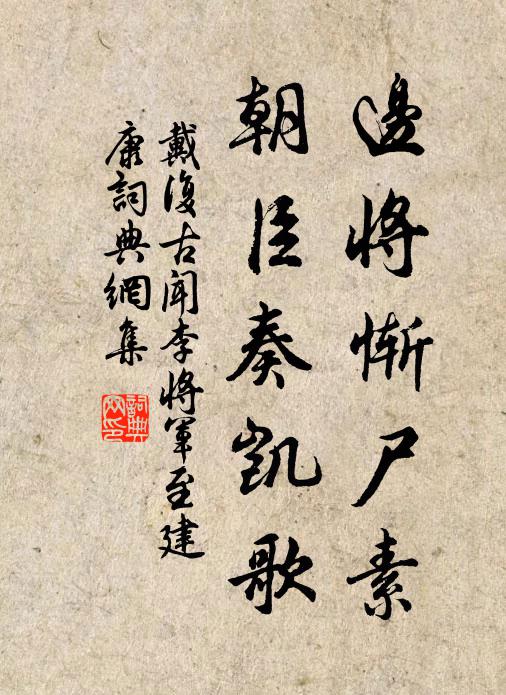 邊將慚尸素
朝臣奏凱歌
戴復古聞李將軍至建
康詞典網集
詞典網印